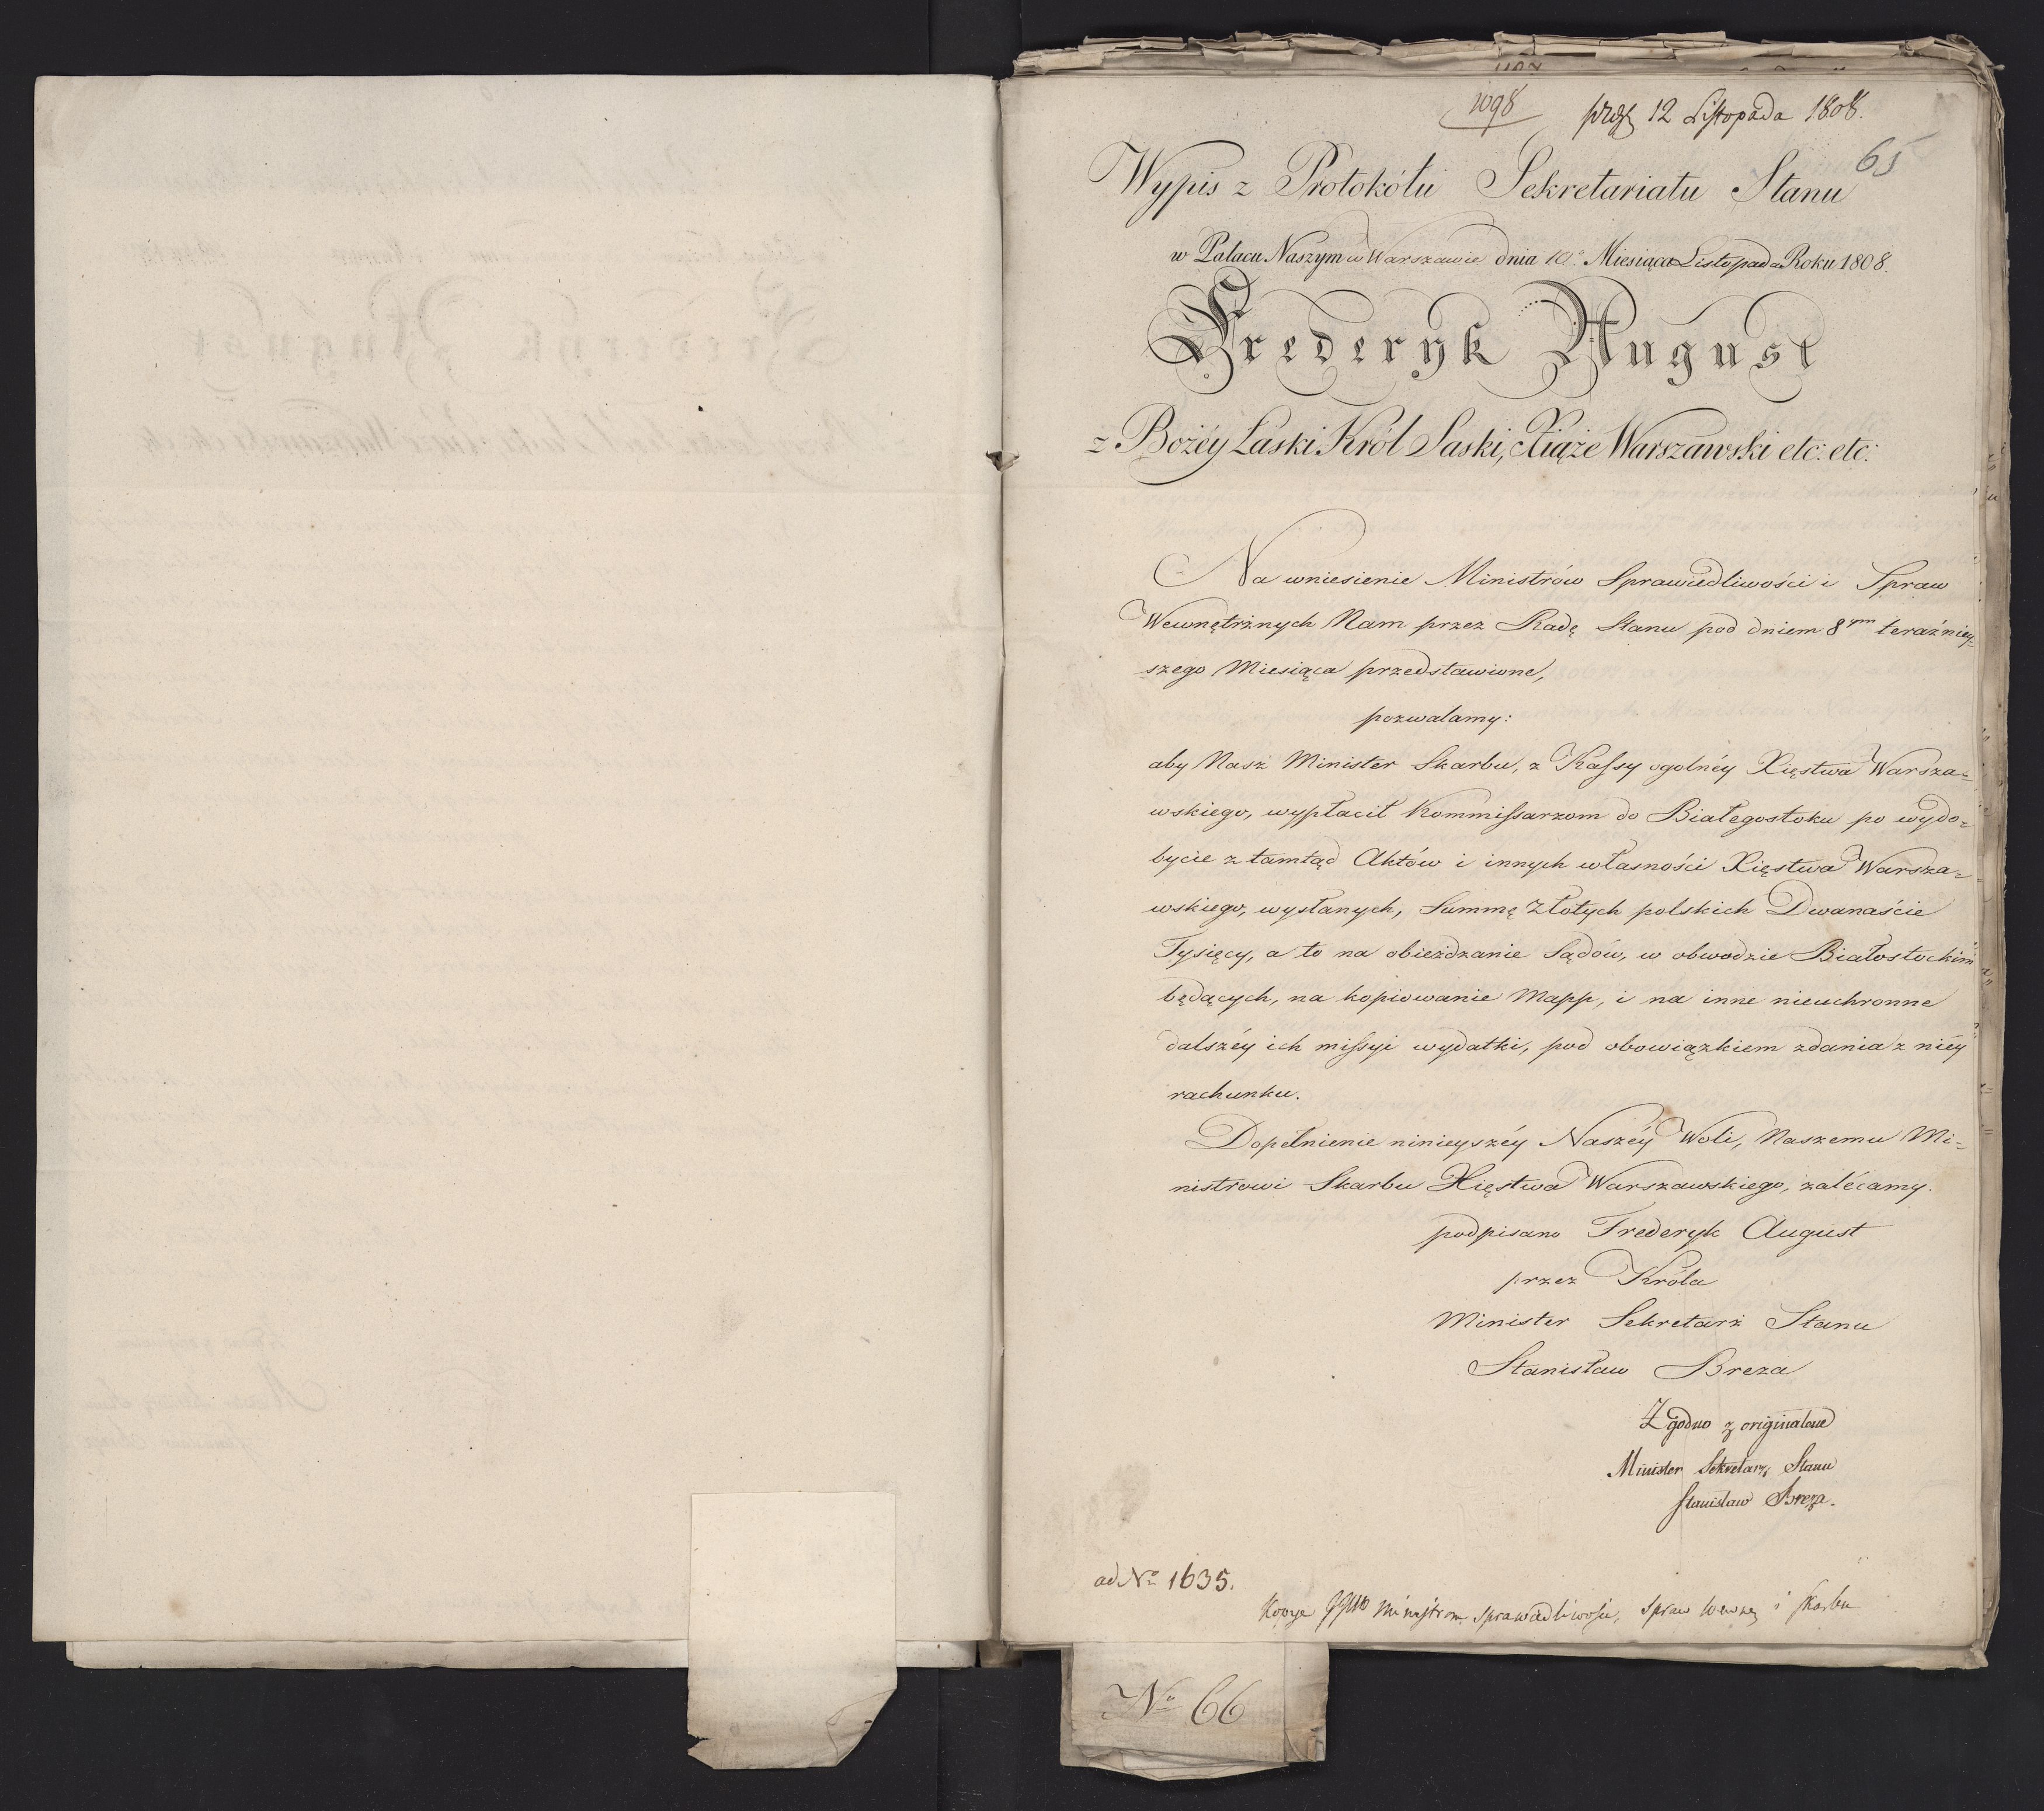 1098
12 Listopada 1808.
65
Wypis z Protokółu Sekretariatu Stanu
w Pałacu Naszym w Warszawie dnia 10º Miesiąca Listopada Roku 1808.
Frederyk August
z Bożéy Łaski Król Saski, Xiąże Warszawski etc: etc:
Na wniesienie Ministrów Sprawiedliwości i Spraw
Wewnętrżnych Nam przez Radę Stanu pod dniem 8ym teraźniey=
szego Miesiąca przedstawione,
pozwalamy:
aby Nasz Minister Skarbu, z Kassy ogolnéy Xięstwa Warsza=
wskiego, wypłacił Kommissarzom do Białegostoku po wydo=
bycie z tamtąd Aktów i innych własności Xięstwa Warsza=
wskiego, wysłanych, Summę Złotych polskich Dwanaście
Tysięcy, a to na obieżdzanie Sądów, w obwodzie Białostockim
będących, na kopiowanie Mapp, i na inne nieuchronne
dalszéy ich missyi wydatki, pod obowiązkiem zdania z niéy
rachunku.
Dopełnienie ninieyszéy Naszéy Woli, Naszemu Mi=
nistrowi Skarbu Xięstwa Warszawskiego, zalécamy.
podpisano Frederyk August
przez Króla
Minister Sekretarz Stanu
Stanisław Breza
Zgodno z originałem
Minister Sekretarz Stanu
Stanisław Breza.
ad Nº 1635.
Kopye Ministrom Sprawiedliwości, Spraw Wewnę i Skarbu
Nº 66